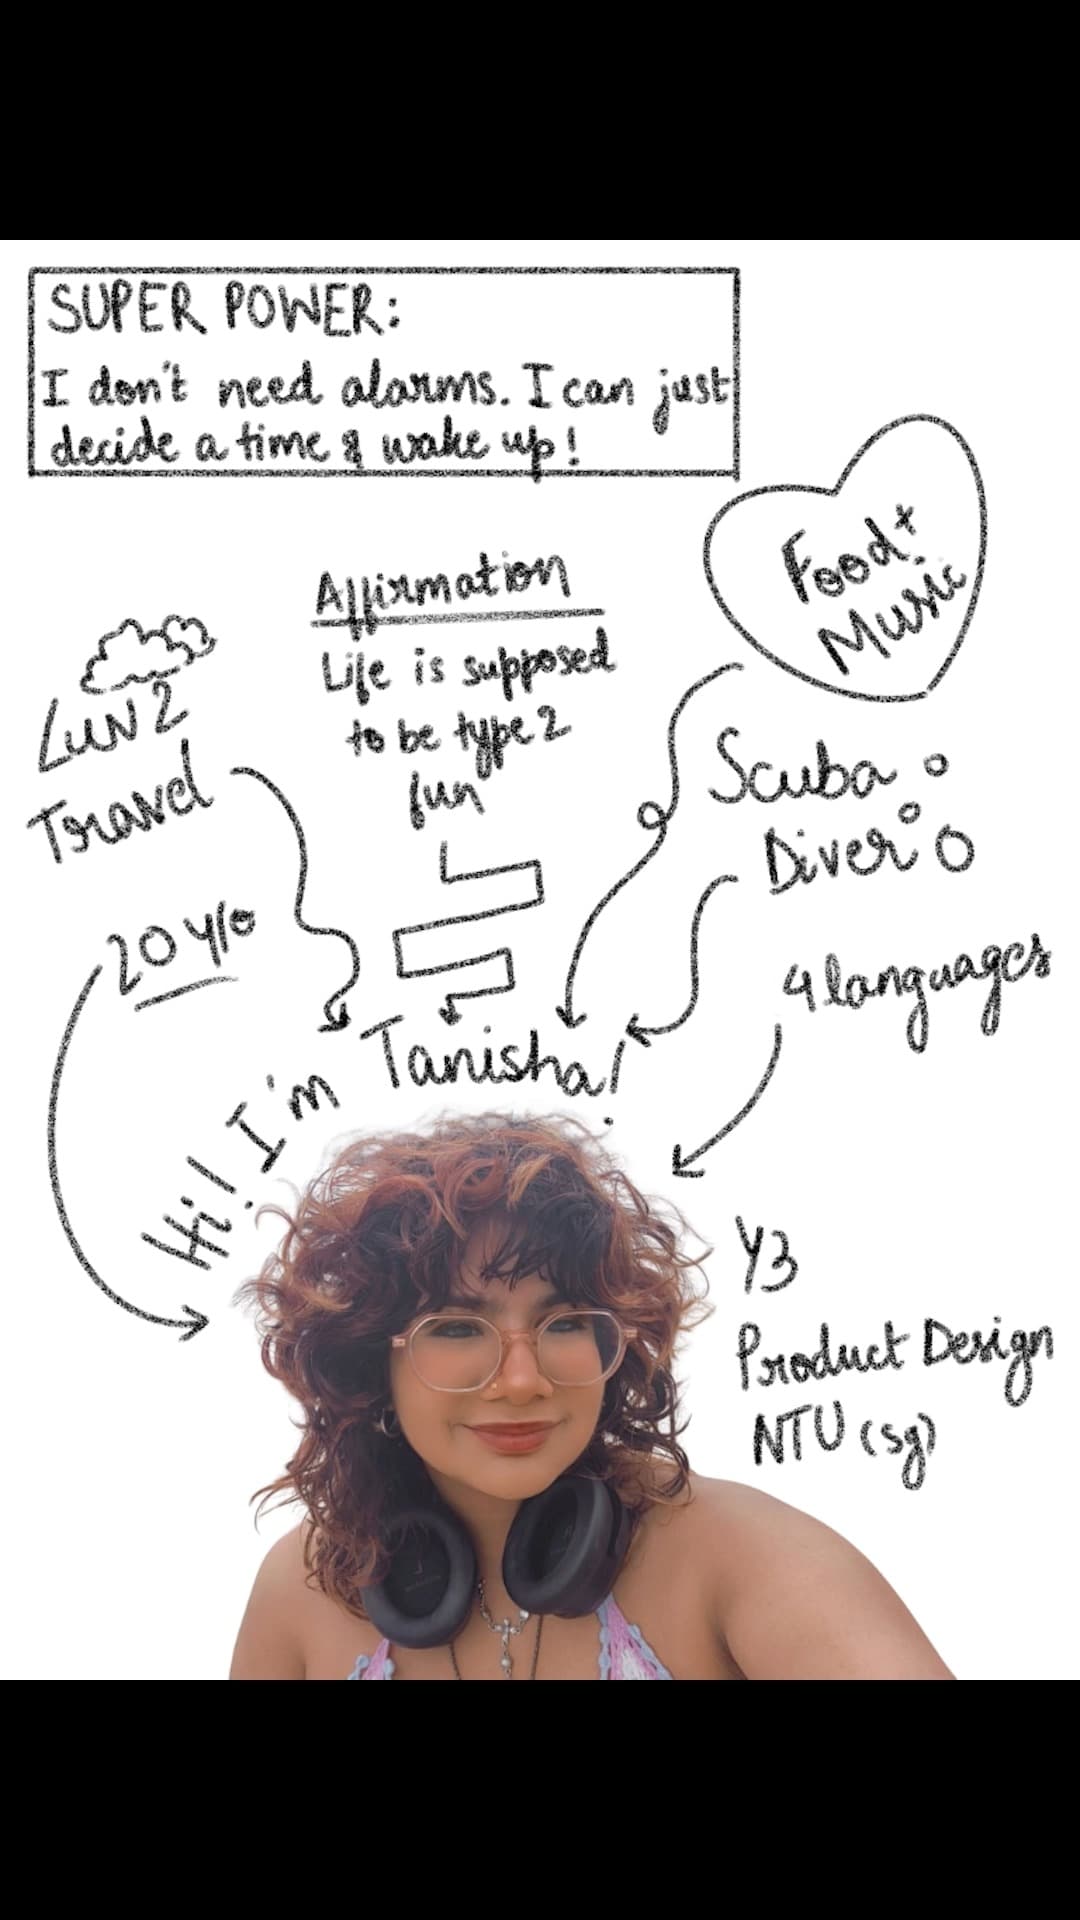 SUPER POWER:
I don't need alarms. I can just
decide a time & wake up!
Food +
Music
Affirmation
Life is supposed
to be type 2
fun
Luv 2
Travel
Scuba
Diver
20 y/o
4 languages
Hi! I'm Tanisha!
Y3
Product Design
NTU (sg)